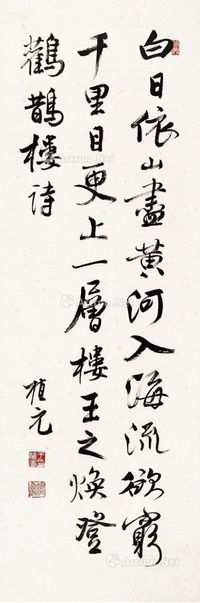 白日依山盡黃河入海流欲窮
千里目更上一層樓王之煥登
鸛鵲樓詩
植元